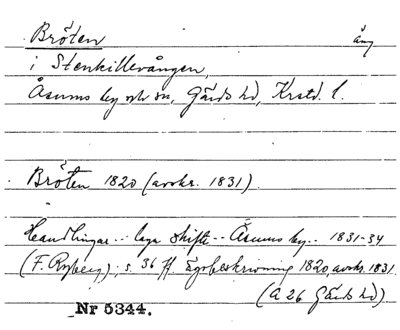 Bröten äng
i Stenkillevången,
Åsums by och sn, Gärds hd, Krstd. l.
Bröten 1820 (avskr. 1831)
Handlingar .. laga skifte .. Åsums by .. 1831-34
(F. Ryberg); s. 36 ff. Egobeskrivning 1820, avskr. 1831.
(Å 26 Gärds hd)
Nr 5344.